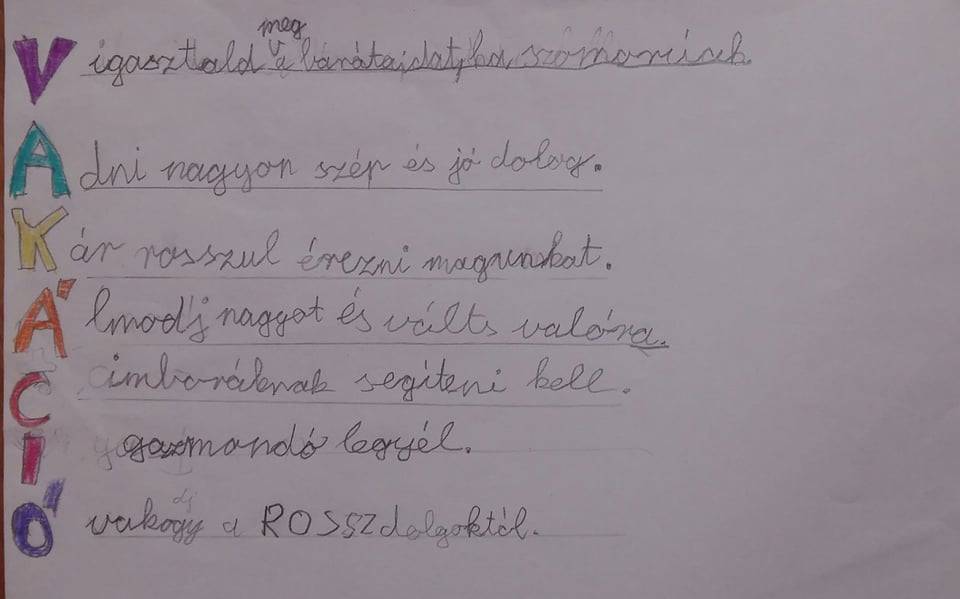 meg
Vigasztald a barátaidat, ha szomorúak.
Adni nagyon szép és jó dolog.
Kár rosszul érezni magunkat.
Álmodj nagyot és válts valóra.
Cimboráknak segíteni kell.
Igazmondó legyél.
dj
Óvakogy a ROSSZ dolgoktól.